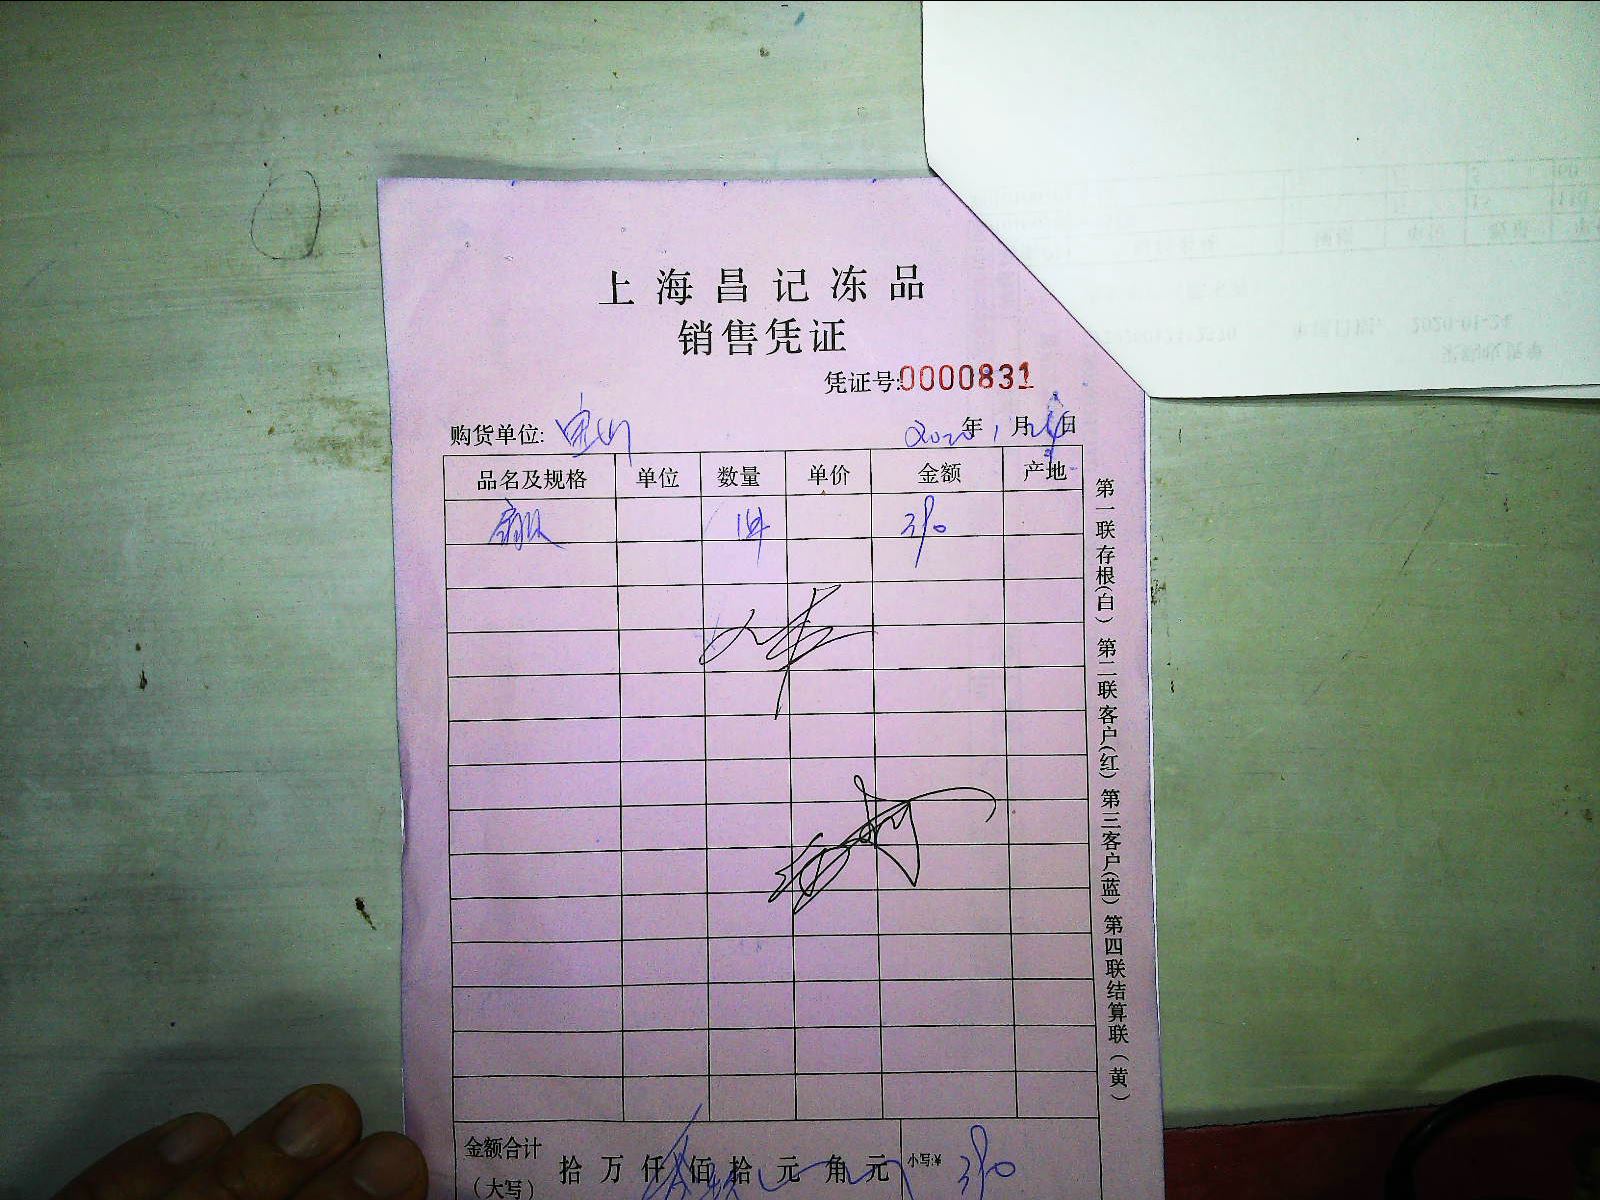 上海昌记冻品
销售凭证
凭证号:0000831
购货单位: 宝山 2020年1月24日
品名及规格 单位 数量 单价 金额 产地
1件 390
第一联存根(白) 第二联客户(红) 第三客户(蓝) 第四联结算联(黄)
金额合计
(大写) 拾万仟佰拾元角元 小写:¥ 390